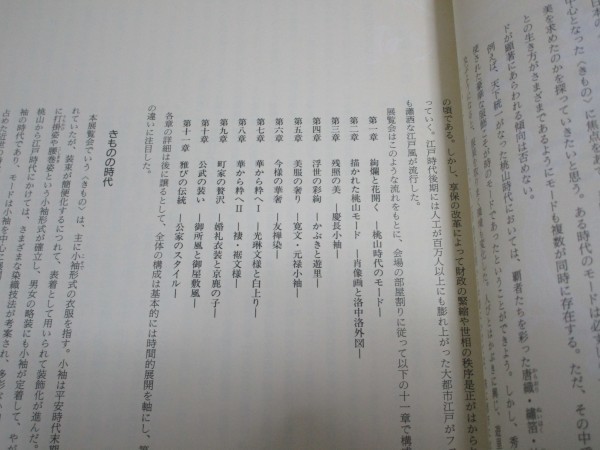 日本の
中心となった〈きもの〉に焦点を
美を求めたのかを探っていきたいと思う。ある時代のモードは必ずし
との生き方がさまざまであるようにモードも複数が同時に存在する。ただ、その中
ドが顕著にあらわれる傾向は否めない。
例えば、天下統一がなった桃山時代においては、覇者たちを彩った唐織・繡箔・
の頃である。しかし、享保の改革によって財政の緊縮や世相の秩序是正がはから
っていく。江戸時代後期には人工が百万人以上にも膨れ上がった大都市江戸がフ
も瀟洒な江戸風が流行した。
展覧会はこのような流れをもとに、会場の部屋割りに従って以下の十一章で構成
第一章 絢爛と花開く ―桃山時代のモード―
第二章 描かれた桃山モード ―肖像画と洛中洛外図―
第三章 残照の美 ―慶長小袖―
第四章 浮世の彩絢 ―かぶきと遊里―
第五章 美服の奢り ―寛文・元禄小袖―
第六章 今様の華奢 ―友禅染―
第七章 華から粋へⅠ ―光琳文様と白上り―
第八章 華から粋へⅡ ―褄・裾文様―
第九章 町家の贅沢 ―婚礼衣装と京鹿の子―
第十章 公武の装い ―御所風と御屋敷風―
第十一章 雅びの伝統 ―公家のスタイル―
各章の詳細は後に譲るとして、全体の構成は基本的には時間的展開を軸にし、第
の違いに注目した。
きものの時代
本展覧会でいう〈きもの〉は、主に小袖形式の衣服を指す。小袖は平安時代末期
れていたが、装束が簡便化するにつれて、表着として用いられて装飾化が進んだ。
に打掛姿や腰巻姿という小袖形式が確立し、男女の略装にも小袖が定着して、や
桃山から江戸時代にかけては、さまざまな染織技法が考案され、多彩な
袖の時代であり、モードは小袖を中心に